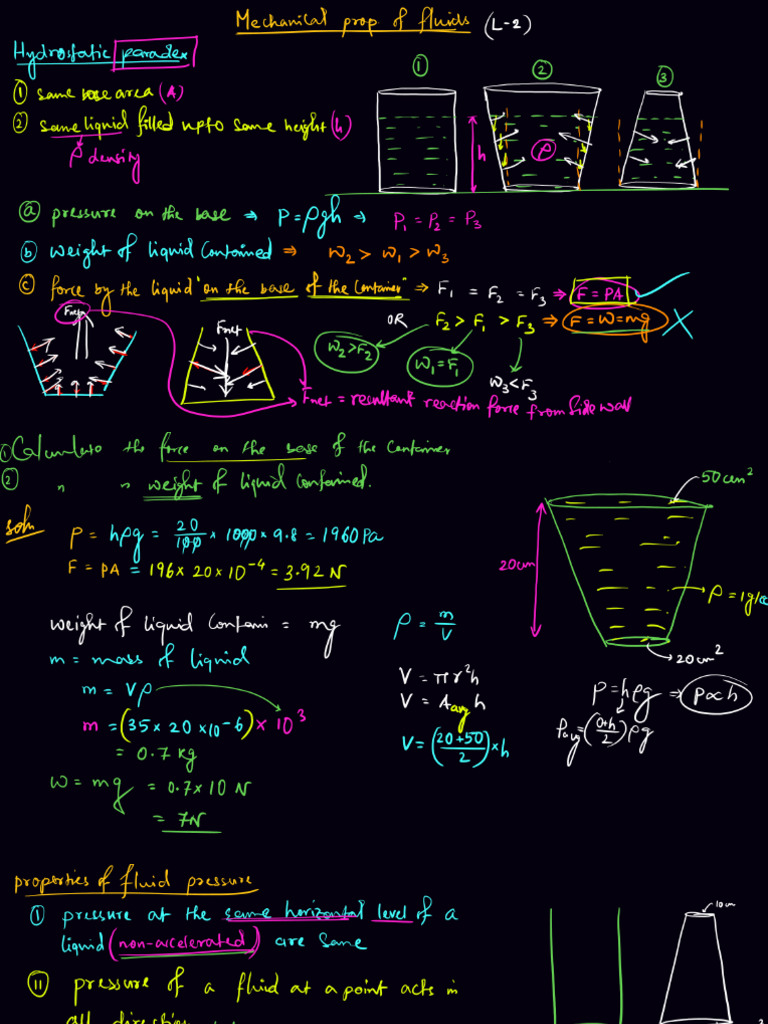 Mechanical prop of fluids (L-2)
Hydrostatic paradox
① same base area (A)
② same liquid filled upto same height (h)
ρ density
①
②
③
h
ρ
ⓐ pressure on the base → P = ρgh → P₁ = P₂ = P₃
ⓑ weight of liquid contained ⇒ W₂ > W₁ > W₃
ⓒ force by the liquid "on the base of the container" ⇒ F₁ = F₂ = F₃ ⇒ F = PA ✓
OR F₂ > F₁ > F₃ ⇒ F = W = mg ✗
Fnet
Fnet
W₂ > F₂
W₁ = F₁
W₃ < F₃
Fnet = resultant reaction force from side wall
① Calculate the force on the base of the container
② " " weight of liquid contained.
50cm²
20cm
ρ = 1g/cc
20cm²
Soln
P = hρg = 20/100 × 1000 × 9.8 = 1960 Pa
F = PA = 196 × 20 × 10⁻⁴ = 3.92 N
weight of liquid contain = mg
m = mass of liquid
m = Vρ
m = (35 × 20 × 10⁻⁶) × 10³
= 0.7 kg
W = mg = 0.7 × 10 N
= 7N
ρ = m/V
V = πr²h
V = A avg h
V = (20+50/2) × h
P = hρg → P ∝ h
Pavg = (0+h/2) ρg
properties of fluid pressure
① pressure at the same horizontal level of a
liquid (non-accelerated) are same
10cm
② pressure of a fluid at a point acts in
all direction